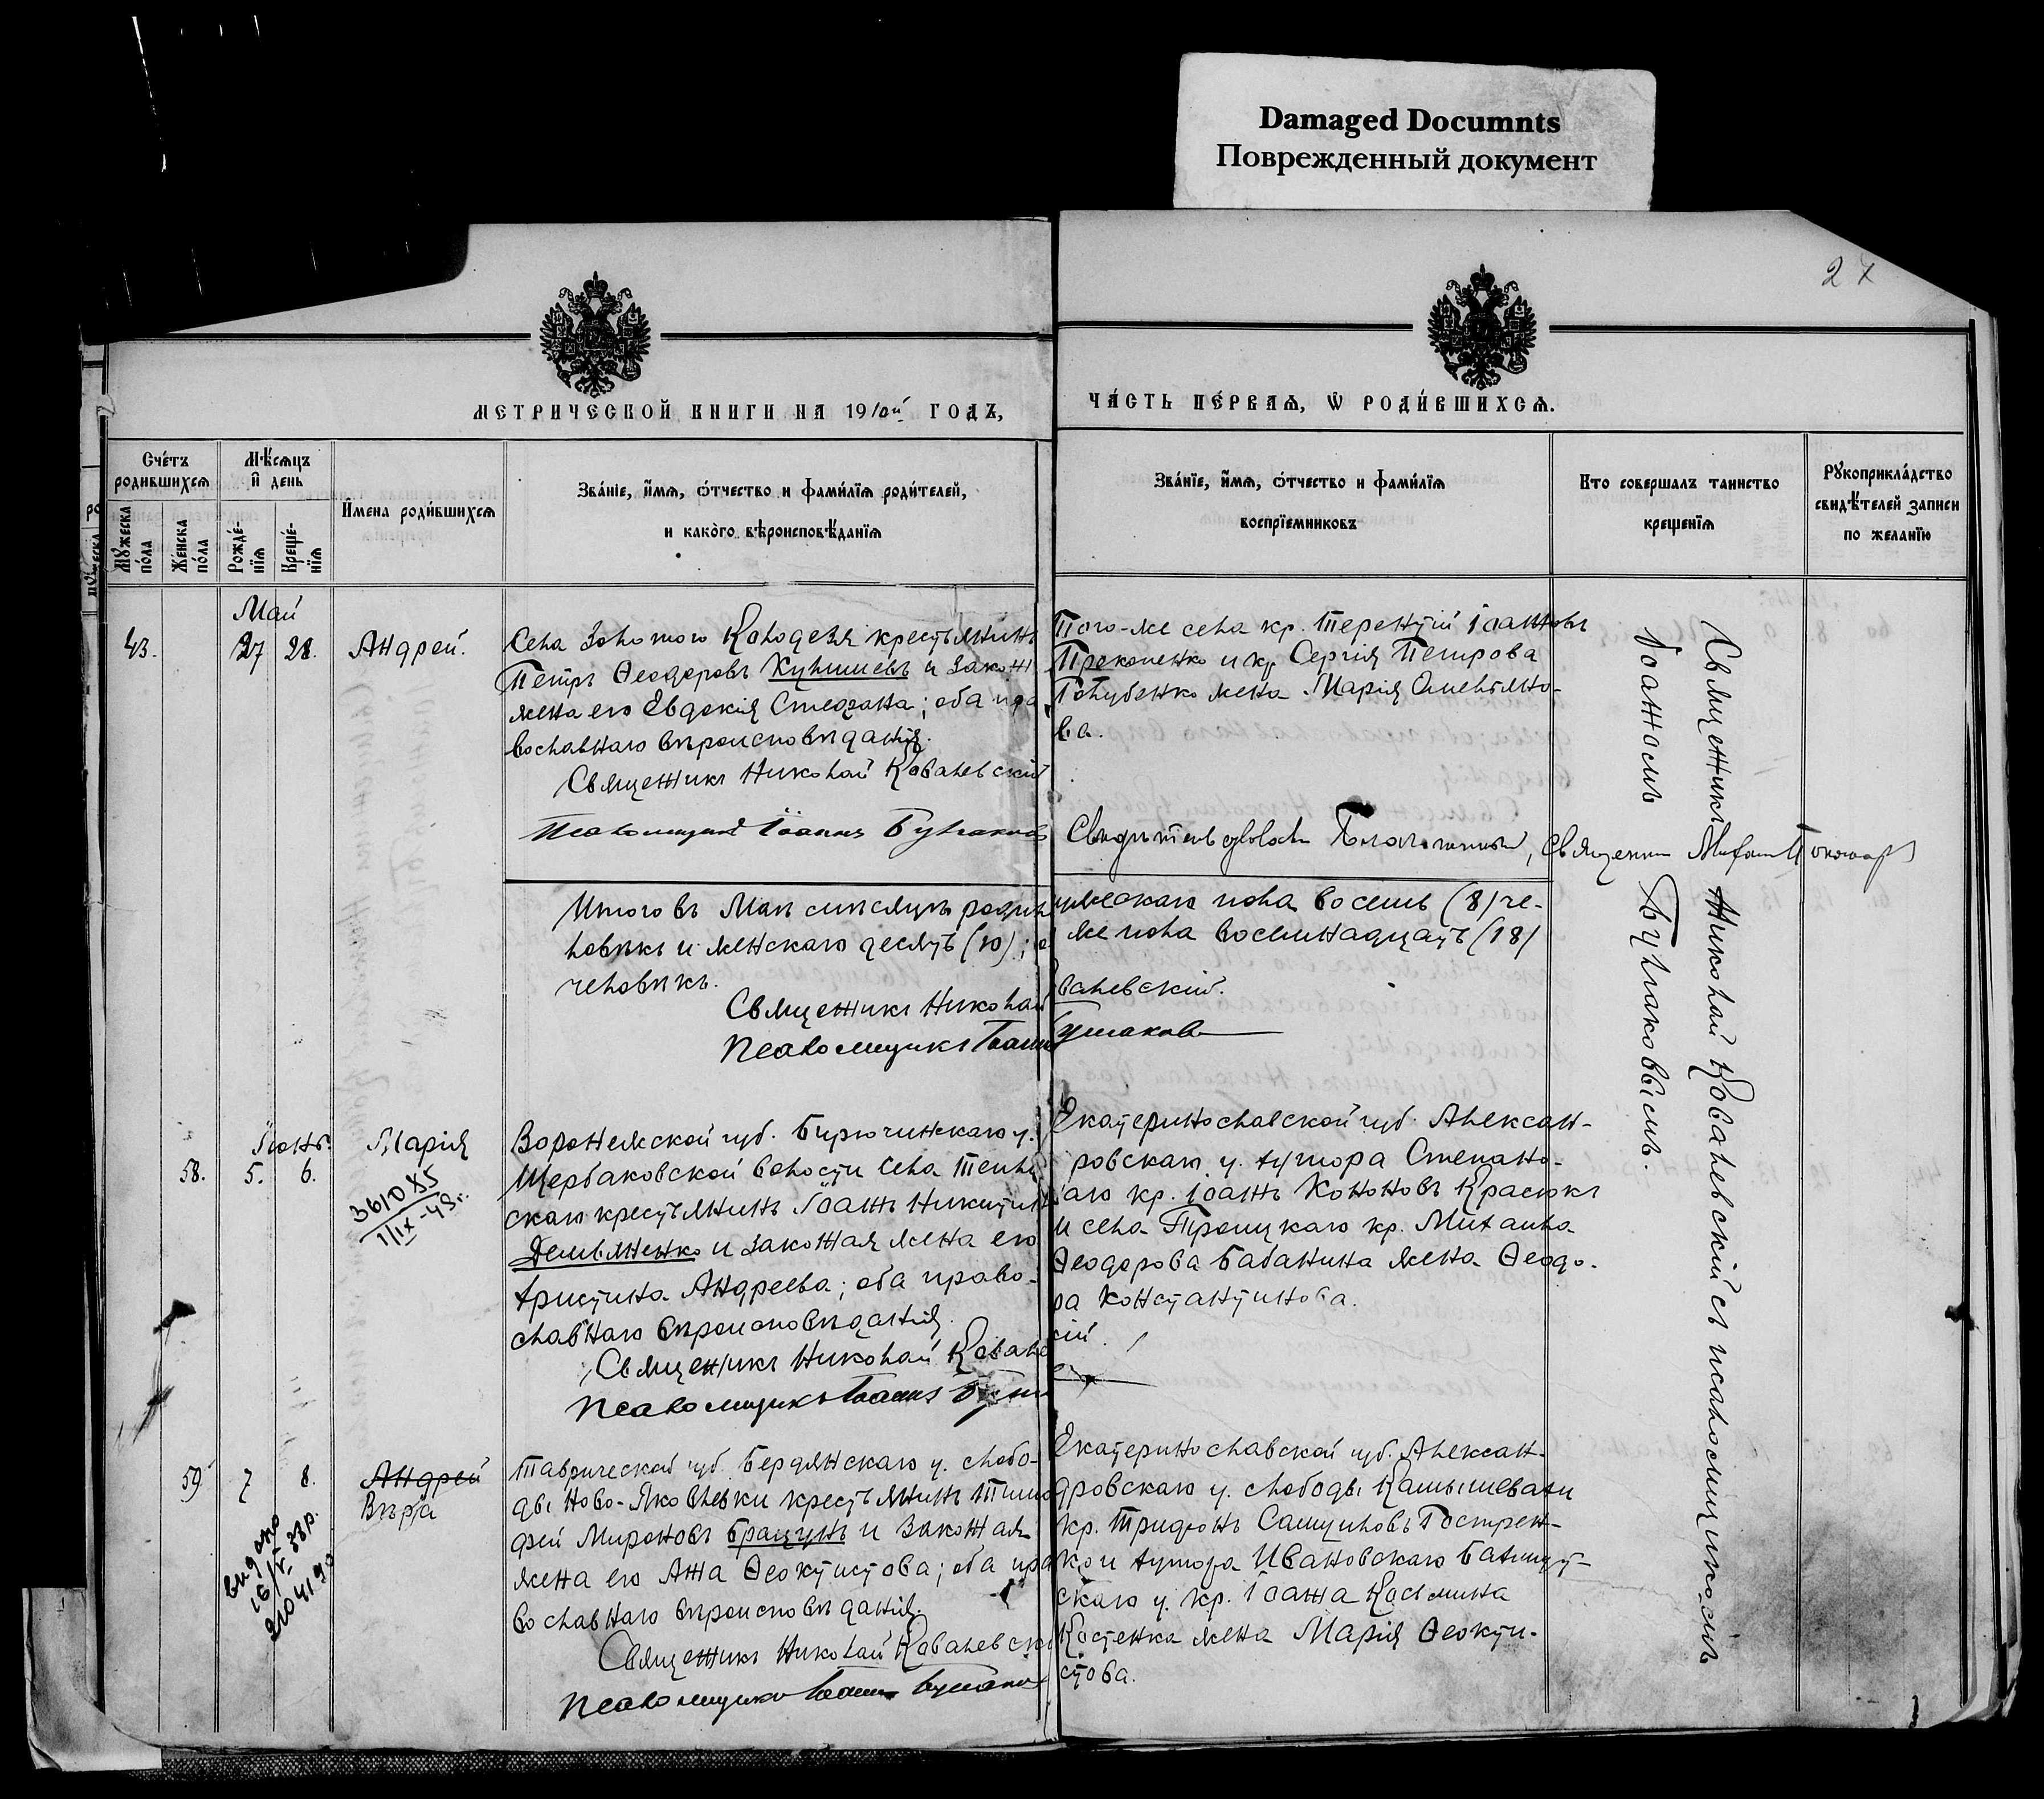 Damaged Documnts
Поврежденный документ
27
МЕТРИЧЕСКОЙ КНИГИ НА 1910й ГОДЪ,
ЧА́СТЬ ПЕ́РВАЯ, Ѡ РОДИ́ВШИХСЯ.
Сче́тъ родившихся
Мѣ́сяцъ и́ день
Мꙋ́жеска по́ла
Же́нска по́ла
Рожде́нїя
Креще́нїя
И́мена роди́вшихся
Зва́нїе, и́мя, ѻ́тчество и фами́лїя роди́телей,
и како́го вѣроисповѣ́данїя
Зва́нїе, и́мя, ѻ́тчество и фами́лїя
воспрїемниковъ
Кто совершалъ таинство
крещенїя
Рꙋкоприкла́дство
свидѣ́телей записи
по желанїю
Май
43. 27 28. Андрей.
Села Золотого Колодезя крестьянинъ
Петръ Ѳеодоровъ и закон
жена его Евдокія Стефанова; оба пра
вославнаго вѣроисповѣданія.
Священникъ Николай Ковалевскій
Псаломщикъ Іоаннъ Бушаковъ
Того-же села кр. Терентій Іоанновъ
Прокопенко и кр. Сергія Петрова
Голубенко жена Марія Емельяно-
ва.
Свидѣтельствовалъ Благочинный, Священникъ
Итого въ Маѣ мѣсяцѣ родил
мужескаго пола восемь (8) че-
ловѣкъ и женскаго десять (10); о
же пола восемнадцать (18)
человѣкъ.
Священникъ Николай
валевскій.
Псаломщикъ Іоаннъ
Бушаковъ
Іюнь.
58. 5. 6. Марія
361085
1/IX-49г.
Воронежской губ. Бирюченскаго у.
Щербаковской волости села
скаго крестьянинъ Іоаннъ Никитинъ
Демьяненко и законная жена его
Христина Андреева; оба право-
славнаго вѣроисповѣданія.
Священникъ Николай Ковалев
Псаломщикъ Іоаннъ Буша
Екатеринославской губ. Алексан-
ровскаго у. хутора Степано-
аго кр. Іоаннъ Кононовъ Красюкъ
и села Троицкаго кр. Михаила
Ѳеодорова Бабанина жена Ѳеодо-
ра Константинова.
кій.
59 7 8. Андрей
Вѣра
видано
16/V-38р.
Таврической губ. Бердянскаго у. слобо-
ды Ново-Яковлевки крестьянинъ Тимо
фей Мироновъ Брацунъ и законная
жена его Анна Ѳеоктистова; оба пра
вославнаго вѣроисповѣданія.
Священникъ Николай Ковалевскі
Псаломщикъ Іоаннъ Бушаков
Екатеринославской губ. Алексан-
дровскаго у. слободы Камышевахи
кр. Трифонъ Самуиловъ Гострен-
ко и хутора Ивановскаго Бахмут-
скаго у. кр. Іоанна Косьмина
Костенка жена Марія Ѳеокти-
стова.
Священникъ Николай Ковалевскій съ псаломщикомъ
Іоанномъ Бушаковымъ.